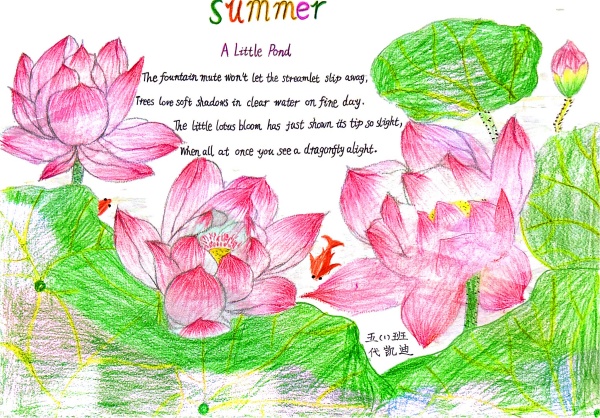 summer
A Little Pond
The fountain mute won't let the streamlet slip away,
Trees love soft shadows in clear water on fine day.
The little lotus bloom has just shown its tip so slight,
When all at once you see a dragonfly alight.
五(1)班
代凯迪